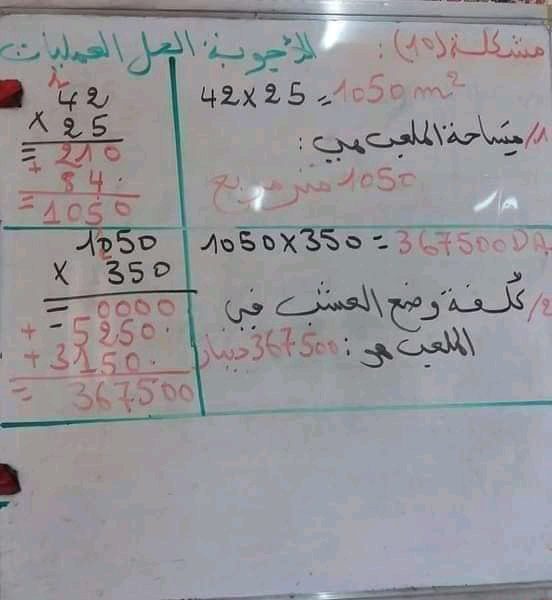 مشكلة (10): الأجوبة الحل العمليات
42 × 25 = 1050 m²
1/ مساحة الملعب هي:
1050 متر مربع
2
42
× 25
= 210
+ 84.
= 1050
1050 × 350 = 367500 DA
2/ تكلفة وضع العشب في
الملعب هو: 367500 دينار
1050
2
× 350
= 0000
+ = 5250.
+ 3150.
= 367500